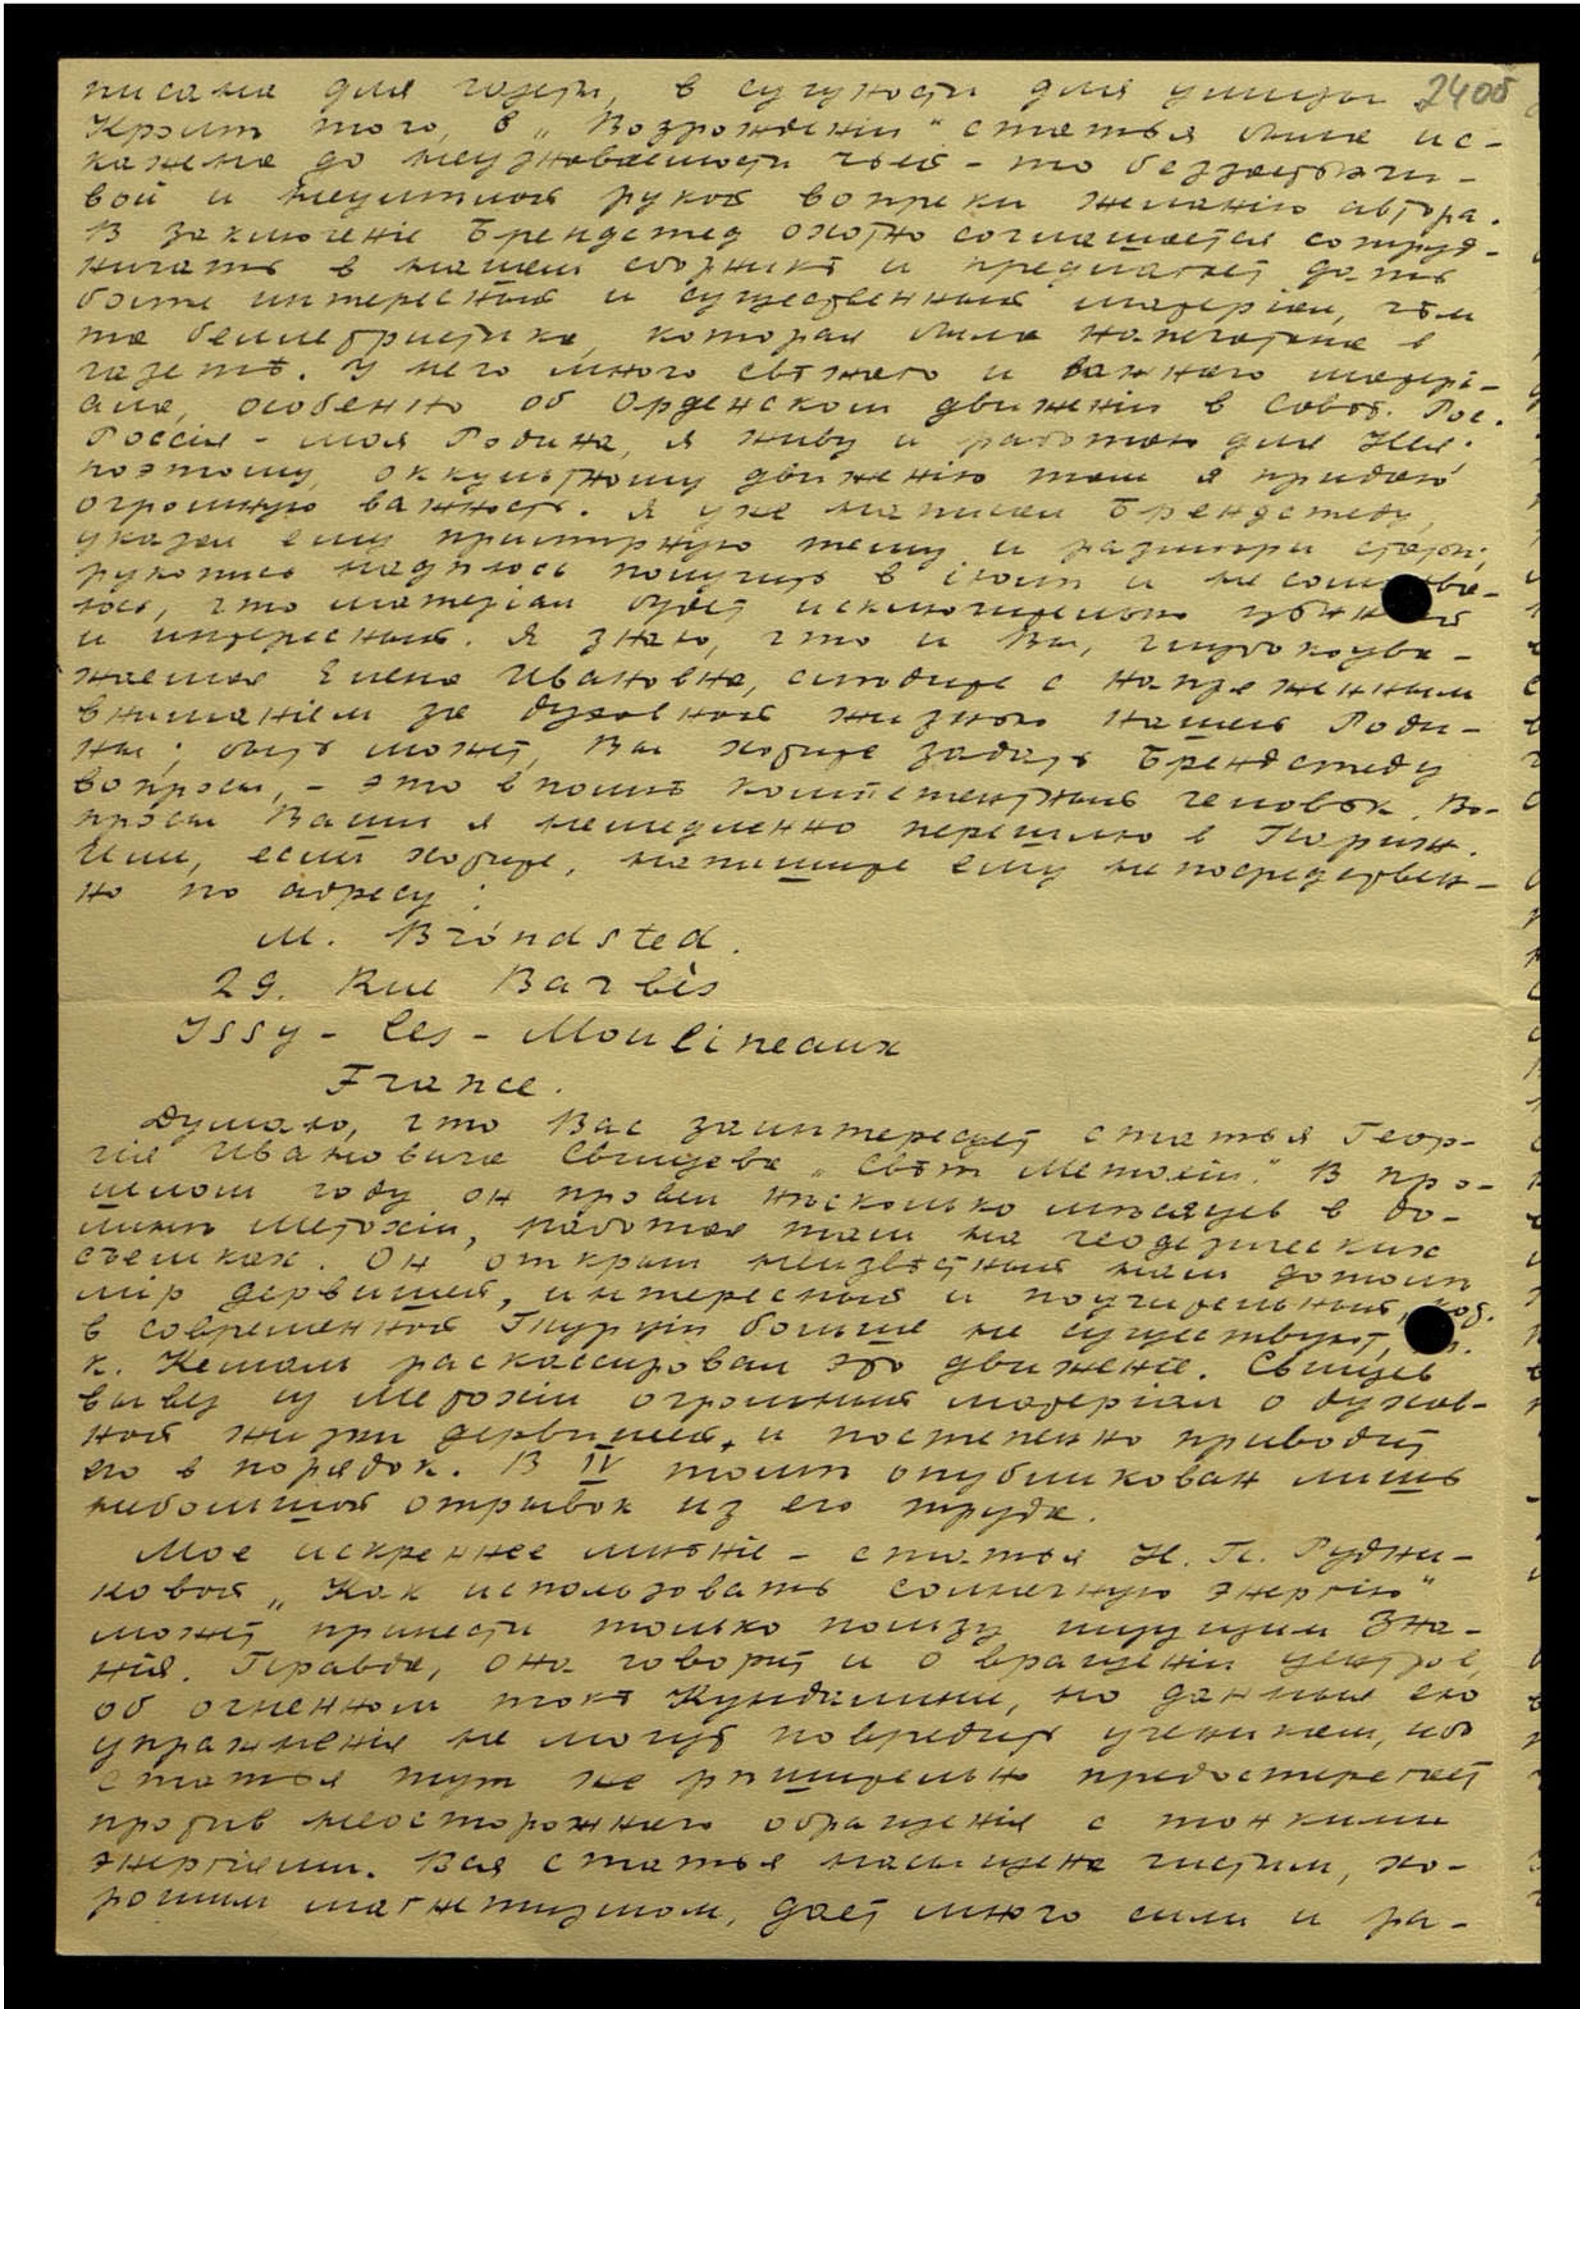 писана для газеты, в сущности для улицы. 240об
Кроме того, в „Возрожденіи" статья была ис-
кажена до неузнаваемости чьей-то беззастѣнчи-
вой и неумелой рукой вопреки желанію автора.
В заключеніе Брендстед охотно соглашается сотруд-
ничать в нашем сборникѣ и предлагает дать
болѣе интересный и существенный матеріал, чѣм
та беллетристика, которая была напечатана в
газетѣ. У него много свѣжаго и важнаго матері-
ала, особенно об Орденском движеніи в Совѣт. Рос.
Россія - моя Родина, я живу и работаю для Нея.
поэтому, оккультному движенію там я придаю
огромную важность. Я уже написал Брендстеду,
указал ему примѣрную тему и размѣры статьи;
рукопись надѣюсь получить в іюлѣ и не сомнѣва-
юсь, что матеріал будет исключительно цѣнный
и интересный. Я знаю, что и Вы, глубокоува-
жаемая Елена Ивановна, слѣдите с напряженным
вниманіем за духовной жизнью нашей Роди-
ны; быть может, Вы хотите задать Брендстеду
вопросы, - это вполнѣ компетентный человѣк. Во-
просы Ваши я немедленно перешлю в Париж.
Или, если хотите, напишите ему непосредствен-
но по адресу:
M. Bröndsted.
29. Rue Barbès
Issy-les-Moulineaux
France.
Думаю, что Вас заинтересует статья Геор-
гія Ивановича Свищева „Свѣт Метохіи." В про-
шлом году он провел нѣсколько мѣсяцев в до-
линѣ Метохіи, работая там на геодезических
съемках. Он открыл неизвѣстный нам дотолѣ
мір дервишей, интересный и поучительный,
в современной Турціи больше не существует,
к. Кемаль раскассировал это движеніе. Свищев
вывез из Метохіи огромный матеріал о духов-
ной жизни дервишей, и постепенно приводит
его в порядок. В IV томѣ опубликован лишь
небольшой отрывок из его труда.
Мое искреннее мнѣніе - статья Н. П. Рудни-
ковой „Как использовать солнечную энергію"
может принести только пользу ищущим Зна-
нія. Правда, она говорит и о вращеніи центров,
об огненном токѣ Кундалини, но данныя ею
упражненія не могут повредить ученикам, ибо
статья тут же рѣшительно предостерегает
против неосторожнаго обращенія с тонкими
энергіями. Вся статья насыщена чистым, хо-
рошим магнетизмом, дает много силы и ра-